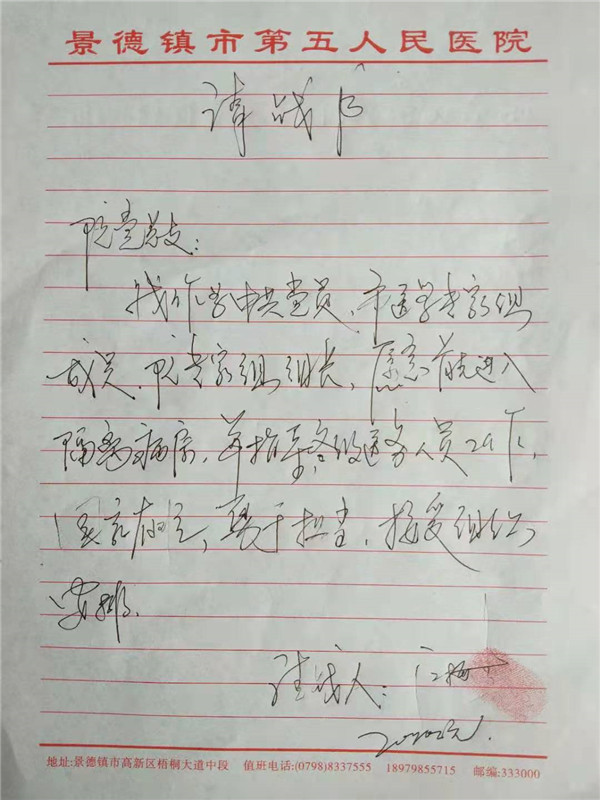 景德镇市第五人民医院
请战书
院党总支:
我作为中共党员、市医学专家组
成员、院专家组组长,愿意首先进入
隔离病房,并指导各级医务人员工作,
国家有难,勇于担当,接受组织
安排.
请战人: 江梅
地址:景德镇市高新区梧桐大道中段 值班电话:(0798)8337555 18979855715 邮编:333000